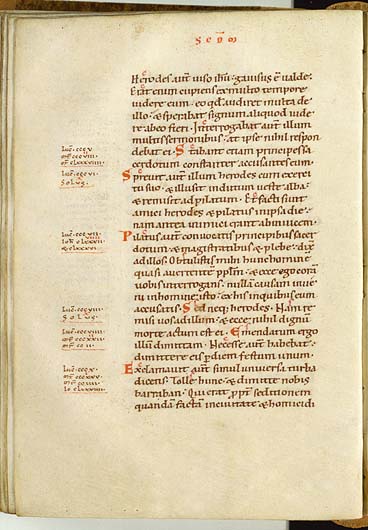 Scdm
Herodes aut̄ uiso ihū gauisus ē ualde.
Erat enim cupiens ex multo tempore
uidere eum. eo qđ audiret multa de
illo. & sperabat signum aliquod uide
re ab eo fieri. Interrogabat aut̄ illum
multis sermonibus. at ipse nihil respon
debat ei. Stabant etiam principes sa
cerdotum constanter accusantes eum.
Spreuit aut̄ illum herodes cum exerci
tu suo. & illusit indutum ueste alba.
& remisit ad pilatum. Et facti sunt
amici herodes & pilatus in ipsa die.
nam antea inimici erant ad inuicem.
Pilatus aut̄ conuocatis principibus sacer
dotum & magistratibus & plebe. dix̄
ad illos. Obtulistis mihi hunc hominē
quasi auertentē pplm̄. & ecce ego corā
uobis interrogans. nullā causam inue
ni in homine isto. ex his in quibus eum
accusatis. Sed neq; herodes. Nam re
misi uos ad illum. & ecce nihil dignū
morte actum est ei. Emendatum ergo
illum dimittam. Necesse aut̄ habebat
dimittere eis p̄ diem festum unum.
Exclamauit aut̄ simul uniuersa turba
dicens. Tolle hunc. & dimitte nobis
barraban. Qui erat ppt̄ seditionem
quandā factā in ciuitate & homicidi